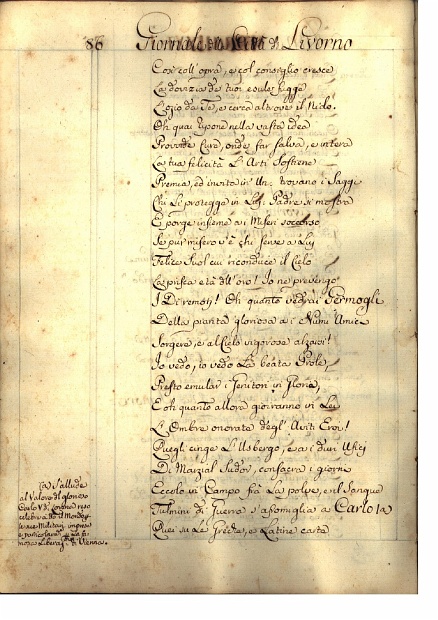 86 Giornale della Città di Livorno
Così coll' opra, e col consiglio cresce
La dovizia de tuoi, esule fugge
L'ozio da Te, e cerca altrove il Nido.
Oh quai espone nella vasta idea
Provide Cure, onde far salva, e intera
La tua felicità L'Arti Sostiene
Premia, ed invita in Un. trovano i Saggi
Chi Li protegge in Lui. Padre si mostra
E porge insieme a i Miseri soccorso
Se pur misero v'è chi serve a Lui
Felice Suol cui riconduce il Cielo
La prisca età dell'oro! Io ne prevengo
I Dì remoti! Oh quanto vedrai Germogli
Della pianta gloriosa a i Numi Amica
Sorgere, e al Cielo vigorose alzarsi!
Io vedo, io vedo La beata Prole,
Presto emular i Genitori in Gloria,
E oh quanto allora gioiranno in Lei
L'Ombre onorate degl' Aviti Eroi!
Quegli cinge L'Usbergo, e a i duri Ufizj
Di Marzial Sudor, consacra i giorni
Eccolo in Campo frà La polve, e 'l Sangue
Fulmini di Guerra s'assomiglia a Carlo
Quei su Le Greche, e Latine carte
S'allude
al Valore del glorioso
Carlo V di Lorena reso
celebre a tutto il Mondo
le sue Militari imprese
e particolare
Liberaz. di Vienna.